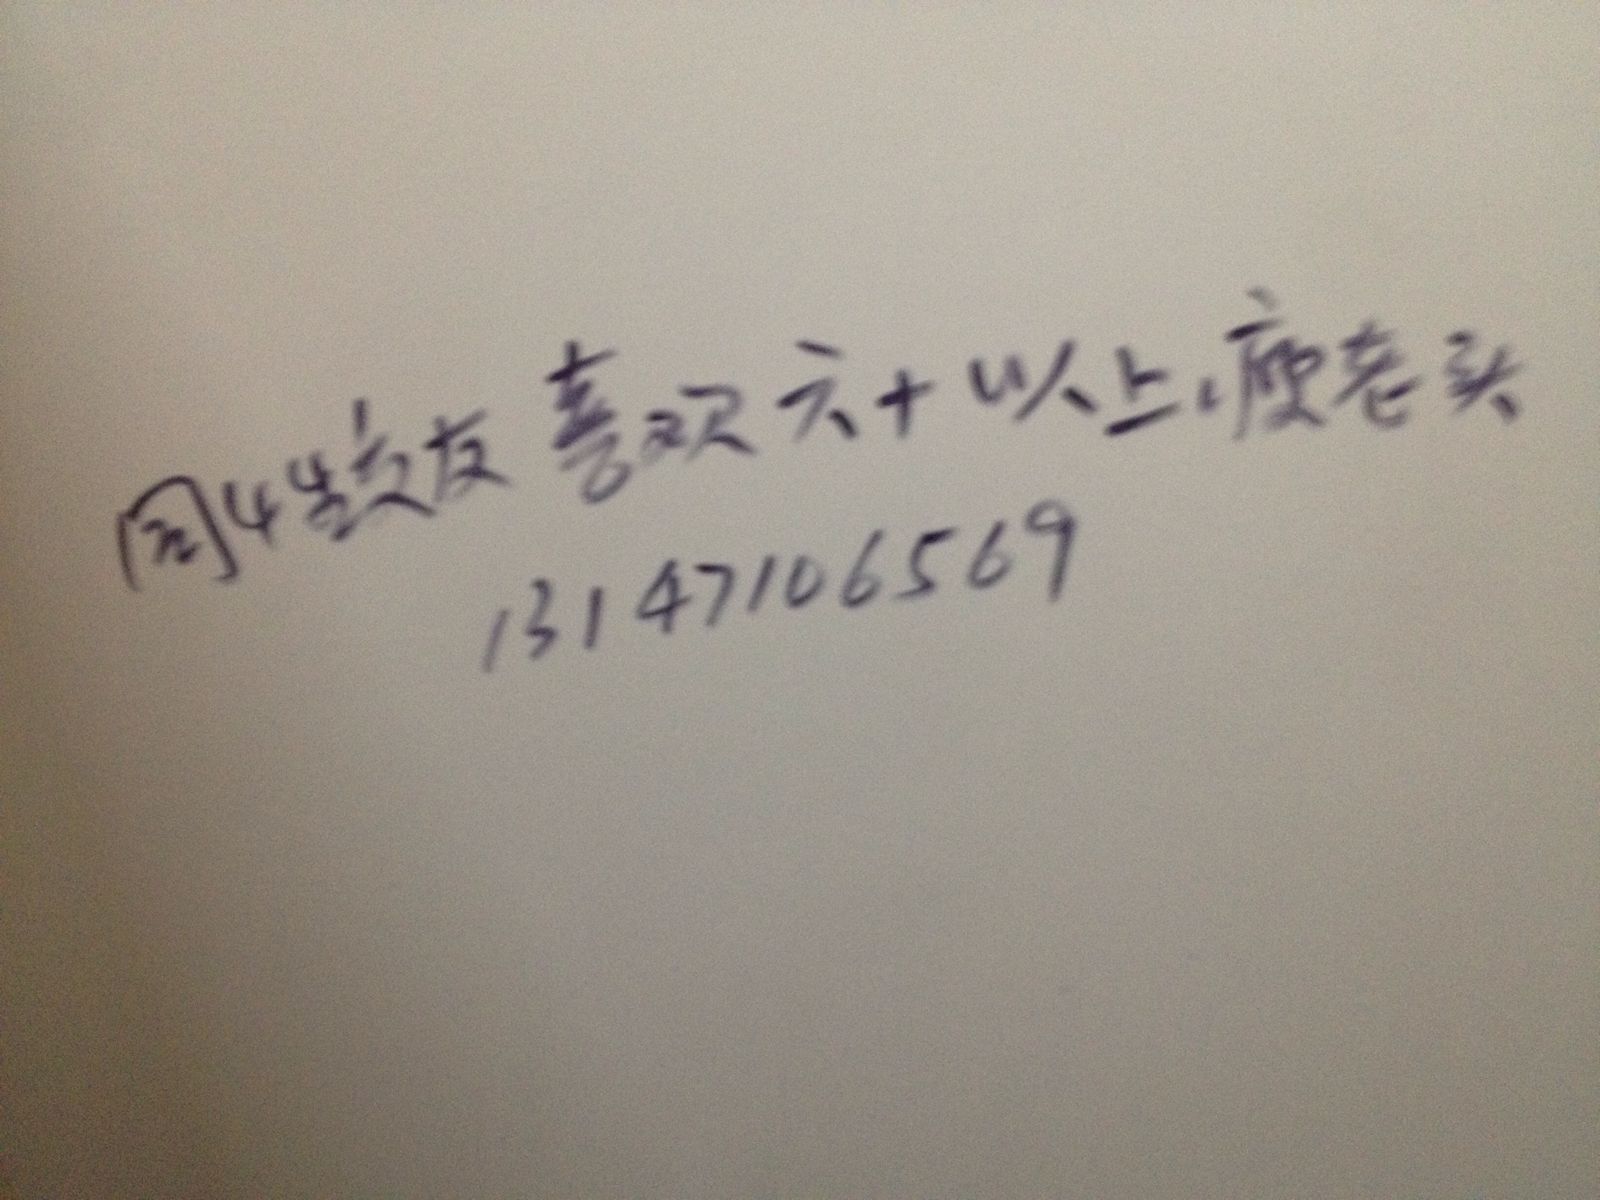 同性交友喜欢六十以上瘦老头
13147106569